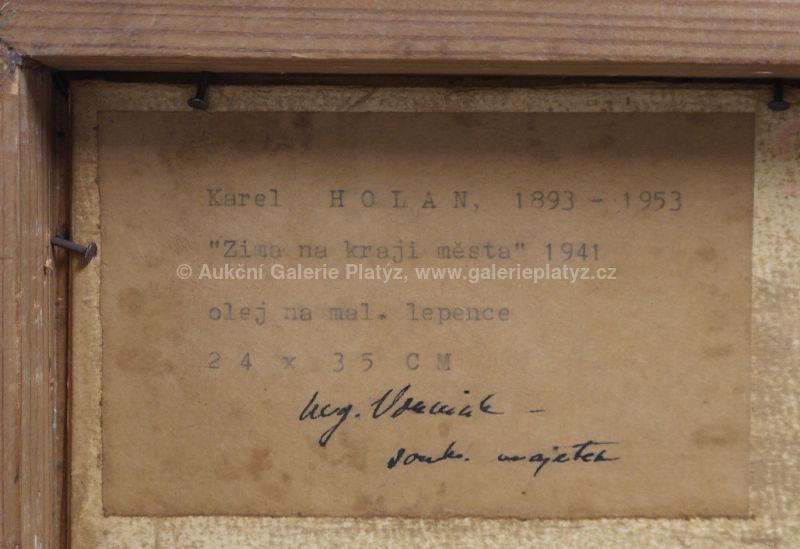 Karel HOLAN, 1893 - 1953
"Zima na kraji města" 1941
© Aukční Galerie Platýz, www.galerieplatyz.cz
olej na mal. lepence
24 x 35 CM
souk. majetek